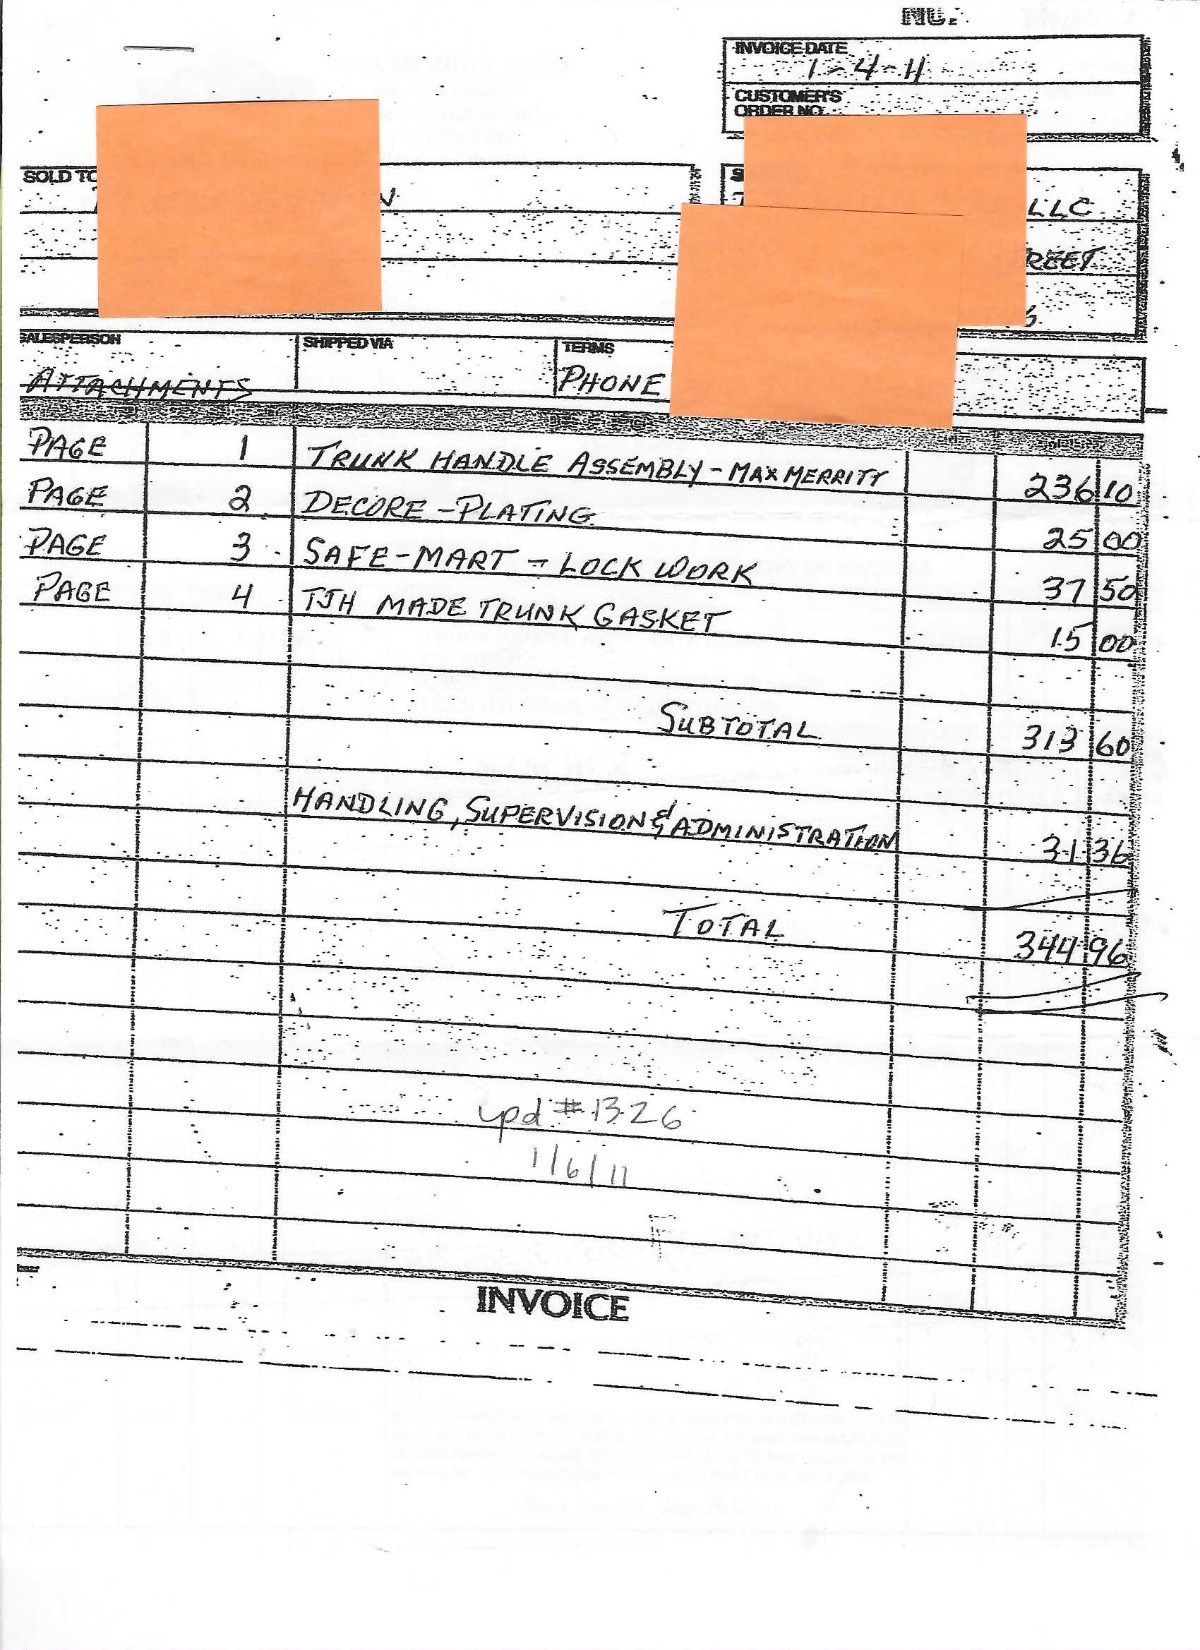 NO.
INVOICE DATE
1-4-11
CUSTOMER'S
ORDER NO.
SOLD TO
LLC
REET
SALESPERSON SHIPPED VIA TERMS
ATTACHMENTS PHONE
PAGE 1 TRUNK HANDLE ASSEMBLY - MAX MERRITT 236 10
PAGE 2 DECORE - PLATING 25 00
PAGE 3 SAFE-MART - LOCK WORK 37 50
PAGE 4 TJH MADE TRUNK GASKET 15 00
SUBTOTAL 313 60
HANDLING, SUPERVISION & ADMINISTRATION 31 36
TOTAL 344 96
pd #1326
1/6/11
INVOICE